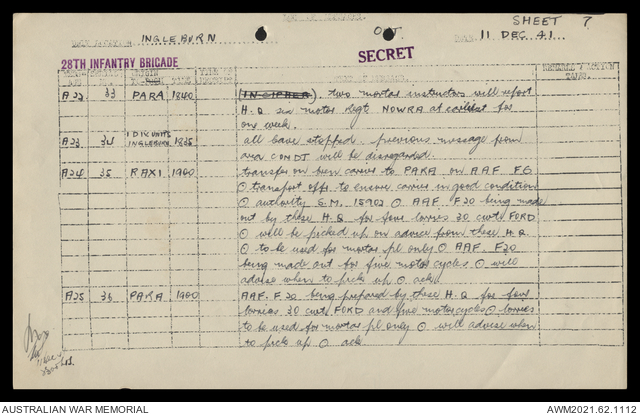 SHEET 7
INGLEBURN OUT. 11 DEC 41.
SECRET
28TH INFANTRY BRIGADE
ORIGIN
A22 33 PARA 1840 (IN CIPHER). two mortar instructors will report
H.Q six motor regt NOWRA at earliest for
one week.
A23 34 1 DIV UNITS INGLEBURN 1835 all leave stopped previous message from
area COMDT will be disregarded.
A24 35 RAXI 1900 transfer one bren carrier to PARA on AAF F6
O transport offr to ensure carrier in good condition
O authority S.M. 15902 O AAF. F20 being made
out by these H.Q for four lorries 30 cwts FORD
O will be picked up on advice from these H.Q.
O to be used for mortar pl only O AAF. F20
being made out for five motor cycles O will
advise when to pick up O ack.
A25 36 PARA 1900 AAF. F.20 being prepared by these H.Q for four
lorries 30 cwt FORD and five motorcycles O lorries
to be used for mortar pl only O will advise when
to pick up O ack
AUSTRALIAN WAR MEMORIAL AWM2021.62.1112